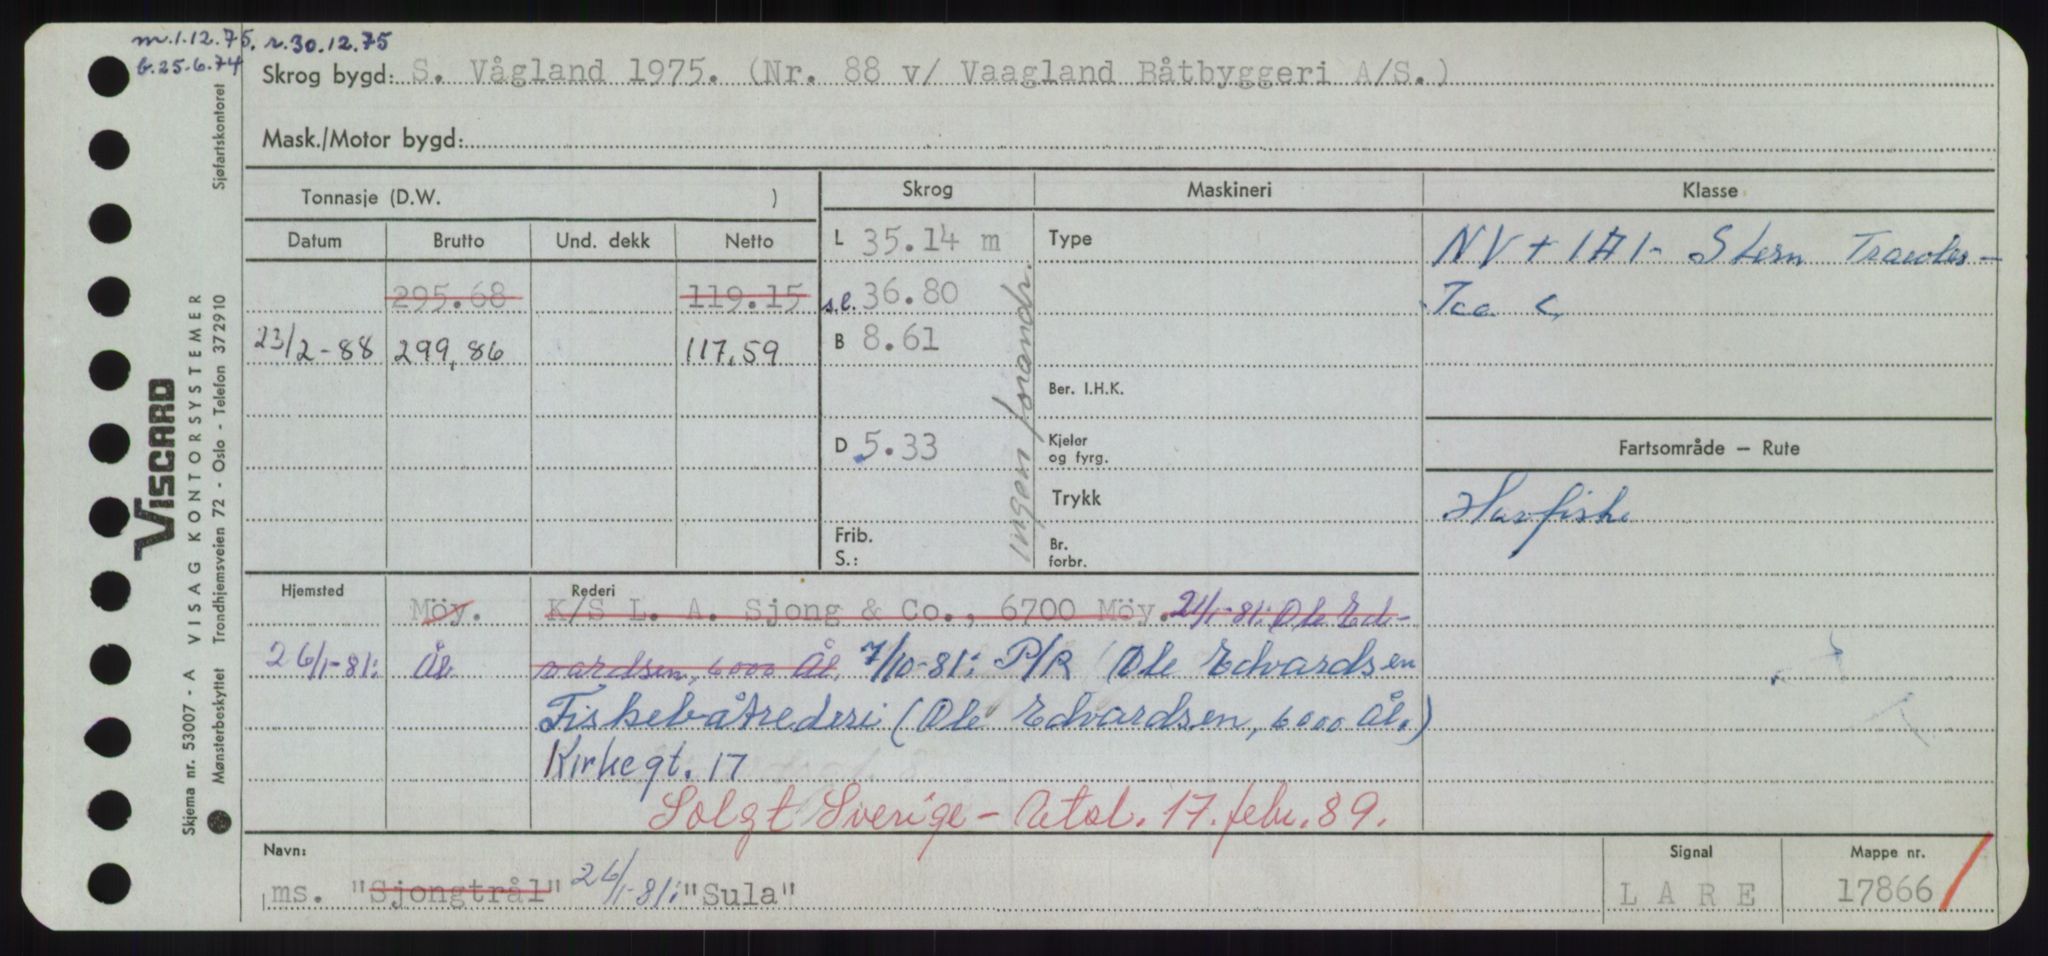 m.1.12.75. r.30.12.75
b.25.6.74
Skrog bygd: S. Vågland 1975. (Nr. 88 v/ Vaagland Båtbyggeri A/S.)
Mask./Motor bygd:
Tonnasje (D.W. ) Skrog Maskineri Klasse
Datum Brutto Und. dekk Netto L 35.14 m Type NV + 1A1- Stern Trawler -
295.68 119.15 s.l. 36.80 Ice C
23/2-88 299,86 117,59 B 8.61
Ber. I.H.K.
D 5.33 Kjeler og fyrg. Fartsområde – Rute
Trykk Havfiske
Frib. Br.
S.: forbr.
ingen forandr.
Hjemsted Rederi
Möy. K/S L. A. Sjong & Co., 6700 Möy. 21/1-81: Ole Ed-
26/1-81: Ål. vardsen, 6000 Ål. 7/10-81: P/R Ole Edvardsen
Fiskebåtrederi (Ole Edvardsen, 6000 Ål.)
Kirkegt. 17
Solgt Sverige - Att. 17. febr. 89.
Navn: Signal Mappe nr.
ms. "Sjongtrål" 26/1-81: "Sula" LARE 17866
VISCARD
VISAG KONTORSYSTEMER
Skjema nr. 53007 - A
Mønsterbeskyttet Trondhjemsveien 72 - Oslo - Telefon 372910 Sjøfartskontoret